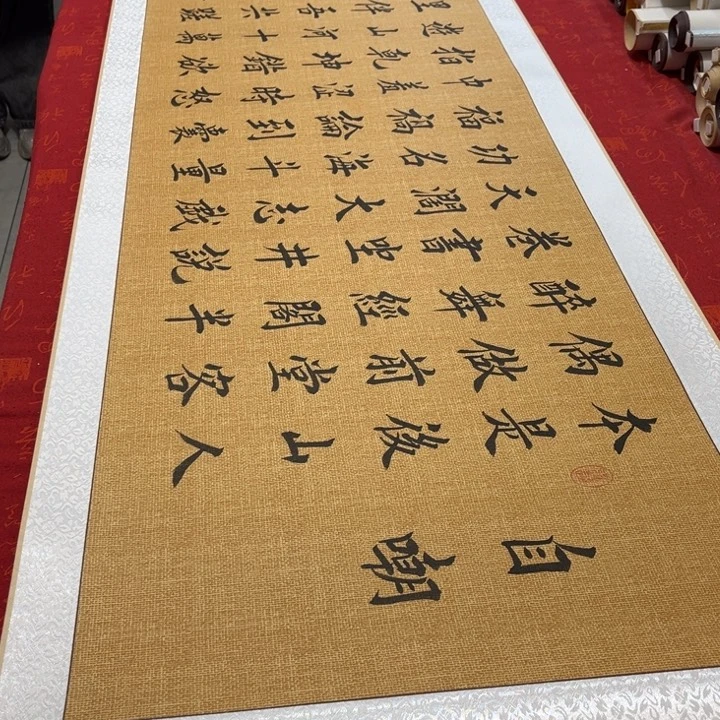 自嘲
本是後山人
偶做前堂客
醉舞經閣半
卷書坐井說
天闊大志戲
功名海斗量
福禍論到囊
中羞涩時怒
指乾坤錯欲
遊山河十萬
里伴吾共